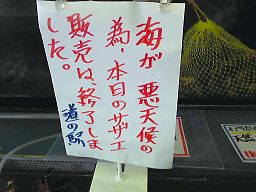 海が悪天候の
為、本日のサザエ
販売は、終了しま
した。
道の駅
天然